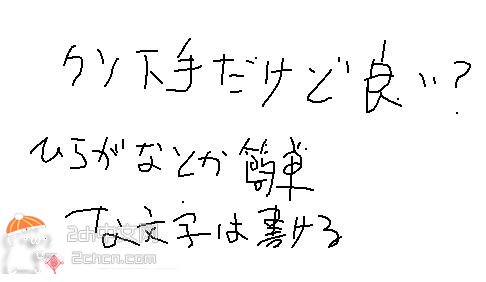 クソ下手だけど良い?
ひらがなとか簡単
な文字は書ける
2ch中文网
2chcn.com